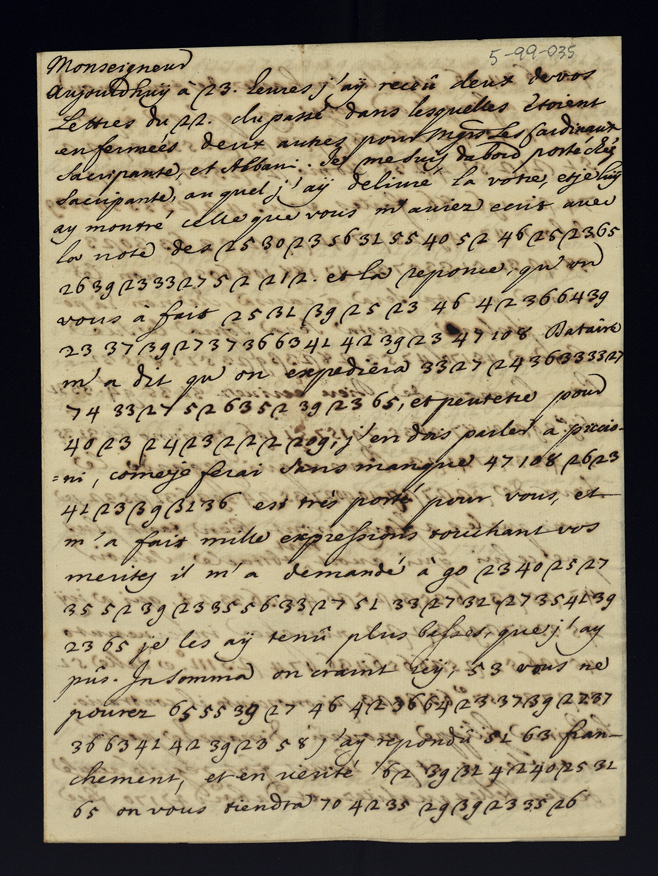 5-99-035
Monseigneur
Aujourdhuy à 23. heures j'aÿ receû deux de vos
Lettres du 22. du passé dans lesquelles étoient
enfermées deux autres pour Mgrs Les Cardinaux
Sacripante, et Albani. Je me suis dabord porté chéz
Sacripante, au quel j'aÿ delivré la vôtre, et je luy
ay montré celle que vous m'aviez ecrit avec
la note des 25 30 23 56 31 55 40 52 46 25 23 65
26 39 23 33 27 52 212. et la reponce, qu'on
vous à fait 25 31 39 25 23 46 42 36 64 39
23 37 39 27 37 36 63 41 42 39 23 47 108 Dataire
m'a dit qu'on expediera 33 27 24 36 33 33 27
74 33 27 52 63 52 39 23 65, et peutetre pour
40 23 24 23 22 22 209, j'en dois parler à
=ni, come je ferai sans manque 47 108 26 23
41 23 39 31 36 est trés porté pour vous, et
m'a fait mille expressions touchant vos
merites il m'a demandé à 90 23 40 25 27
35 52 39 23 35 56 33 27 51 33 27 32 27 35 41 39
23 65 je les aÿ tenû plus basses, que j'aÿ
pûs. In somma on craint icy, 53 vous ne
pourez 65 55 39 27 46 42 36 64 23 37 39 27 37
36 63 41 42 39 23 58 j'aÿ repondû 51 63 fran-
chement, et en verité 62 39 31 42 40 25 31
65 on vous tiendra 70 42 35 29 39 23 35 26